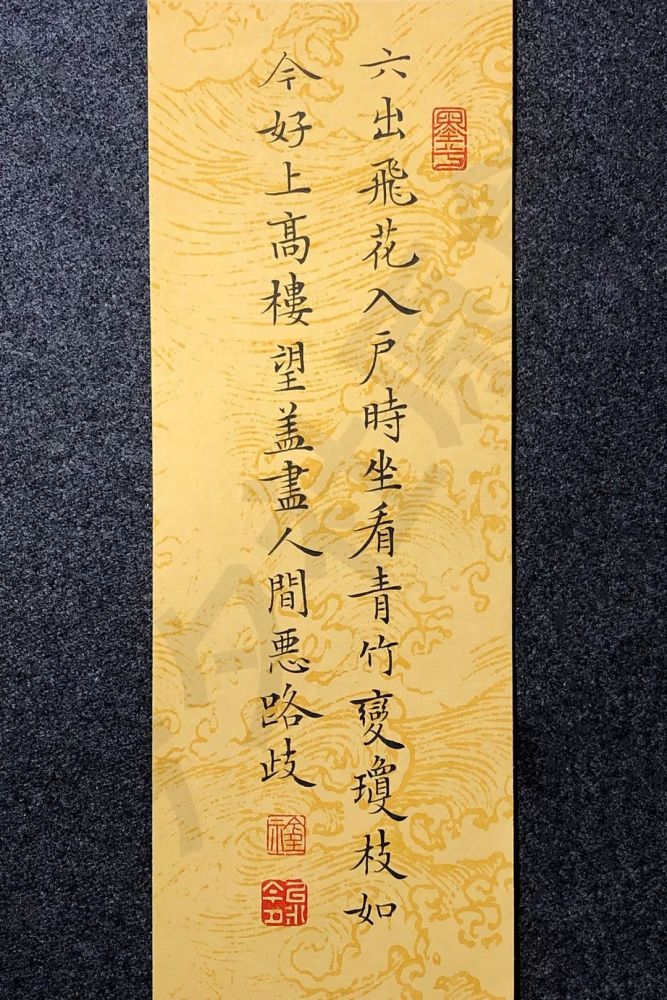 六出飛花入戶時坐看青竹變瓊枝如
今好上高樓望盖盡人間悪路歧